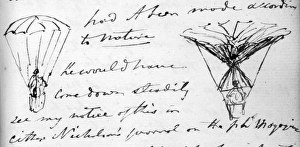 had been made according
to nature
he would have
come down steadily
see my notice of this in
either Nicholson's journal or the phl Magazine